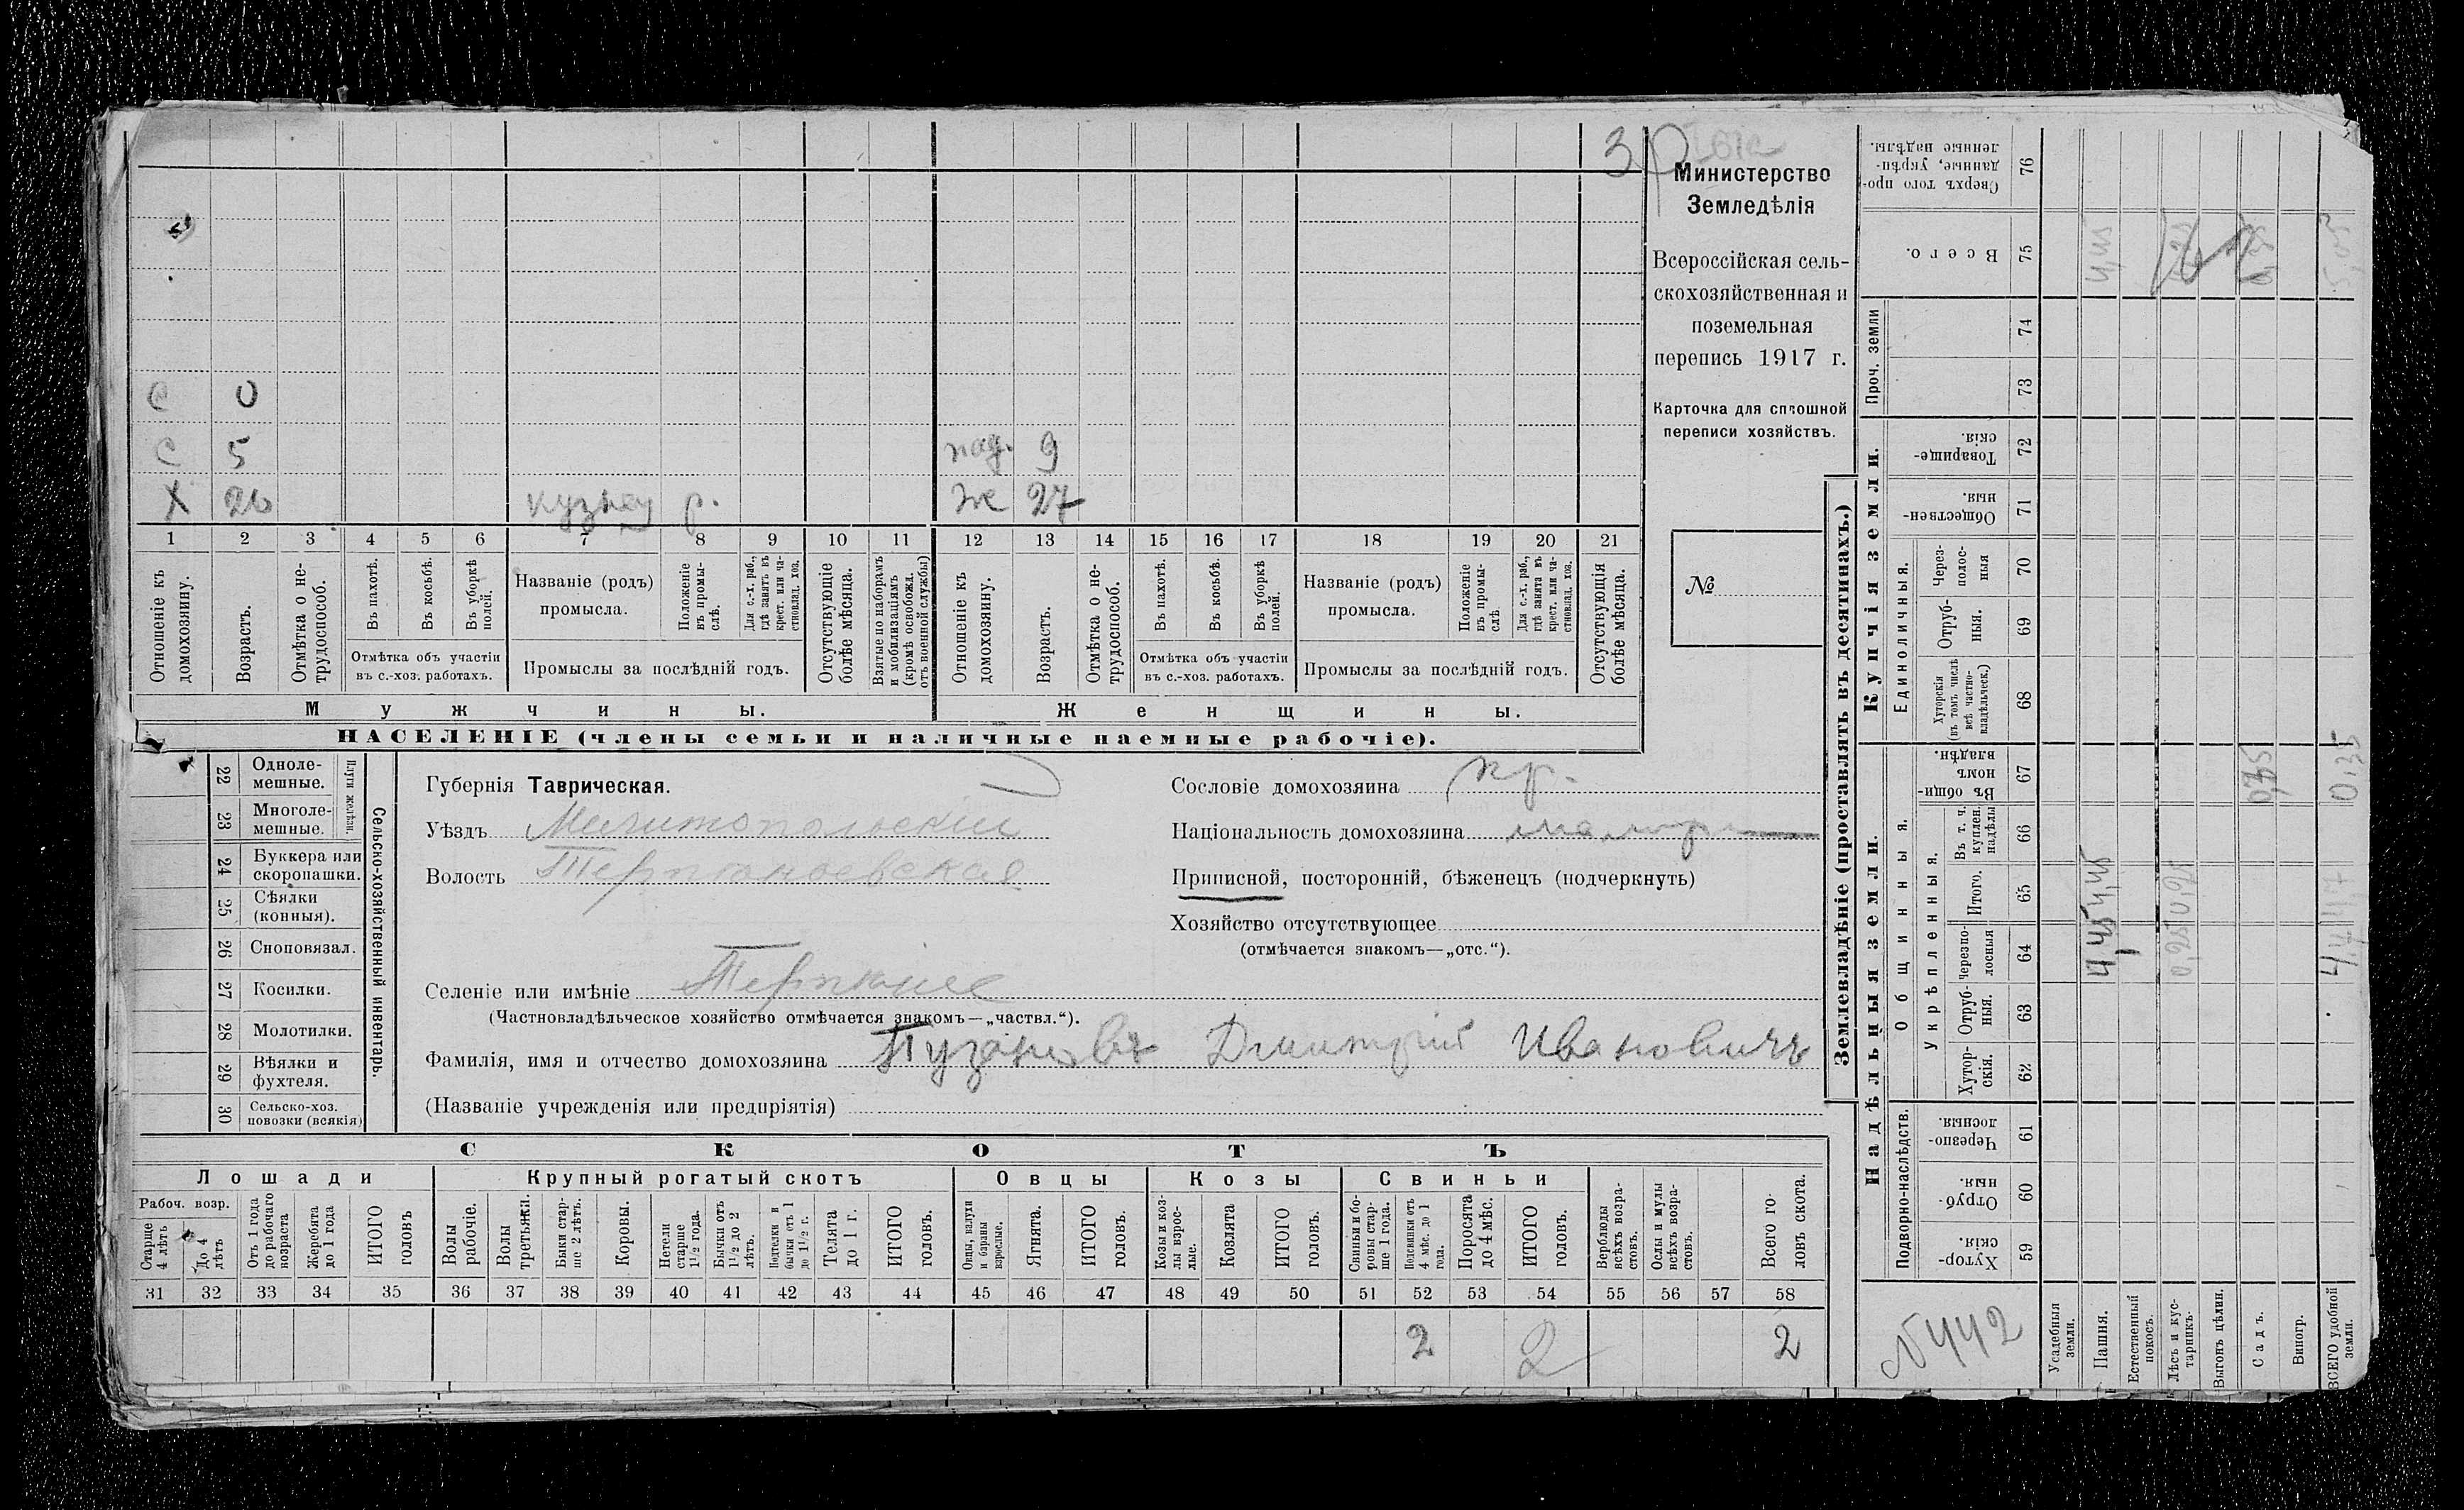 З
Министерство
Земледѣлія
Всероссійская сель-
скохозяйственная и
поземельная
перепись 1917 г.
Карточка для сплошной
переписи хозяйствъ.
№
С 0
С 5 пад. 9
Х 26 кузнец р. Же 27
1 2 3 4 5 6 7 8 9 10 11 12 13 14 15 16 17 18 19 20 21
Отношеніе къ домохозяину.
Возрастъ.
Отмѣтка о не-трудоспособ.
Въ пахотѣ.
Въ косьбѣ.
Въ уборкѣ полей.
Отмѣтка объ участіи въ с.-хоз. работахъ.
Названіе (родъ) промысла.
Положеніе въ промы-слѣ.
Для с.-х. раб., гдѣ занятъ въ крест. или ча-стновлад. хоз.
Промыслы за послѣдній годъ.
Отсутствующіе болѣе мѣсяца.
Взятые по наборамъ и мобилизаціямъ (кромѣ освобожд. отъ военной службы)
Отношеніе къ домохозяину.
Возрастъ.
Отмѣтка о не-трудоспособ.
Въ пахотѣ.
Въ косьбѣ.
Въ уборкѣ полей.
Отмѣтка объ участіи въ с.-хоз. работахъ.
Названіе (родъ) промысла.
Положеніе въ промы-слѣ
Для с.-х. раб., гдѣ занята въ крест. или ча-стновлад. хоз.
Промыслы за послѣдній годъ.
Отсутствующія болѣе мѣсяца.
Мужчины. Женщины.
НАСЕЛЕНІЕ (члены семьи и наличные наемные рабочіе).
Сельско-хозяйственный инвентарь.
Плуги желѣзн.
22 Однолемешные.
23 Многолемешные.
24 Буккера или скоропашки.
25 Сѣялки (конныя).
26 Сноповязал.
27 Косилки.
28 Молотилки.
29 Вѣялки и фухтеля.
30 Сельско-хоз. повозки (всякія)
Губернія Таврическая.
Уѣздъ Мелитопольскій
Волость Терпѣніевская
Селеніе или имѣніе Терпѣніе
(Частновладѣльческое хозяйство отмѣчается знакомъ—„частвл.“).
Фамилія, имя и отчество домохозяина Пузановъ Дмитрій Ивановичъ
(Названіе учрежденія или предпріятія)
Сословіе домохозяина кр.
Національность домохозяина малор
Приписной, посторонній, бѣженецъ (подчеркнуть)
Хозяйство отсутствующее
(отмѣчается знакомъ—„отс.“).
СКОТЪ
Лошади Крупный рогатый скотъ Овцы Козы Свиньи
Рабоч. возр.
Старше 4 лѣтъ
До 4 лѣтъ
Отъ 1 года до рабочаго возраста
Жеребята до 1 года
ИТОГО головъ
Волы рабочіе.
Волы третьяки.
Быки стар-ше 2 лѣтъ.
Коровы.
Нетели старше 1 1/2 года.
Бычки отъ 1 1/2 до 2 лѣтъ.
Подтелки и бычки отъ 1 до 1 1/2 г.
Телята до 1 г.
ИТОГО головъ.
Овцы, валухи и бараны взрослые.
Ягнята.
ИТОГО головъ.
Козы и коз-лы взрос-лые.
Козлята
ИТОГО головъ.
Свиньи и бо-ровы стар-ше 1 года.
Подсвинки отъ 4 мѣс. до 1 года.
Поросята до 4 мѣс.
ИТОГО головъ.
Верблюды всѣхъ возра-стовъ.
Ослы и мулы всѣхъ возра-стовъ.
Всего го-ловъ скота.
31 32 33 34 35 36 37 38 39 40 41 42 43 44 45 46 47 48 49 50 51 52 53 54 55 56 57 58
2 2 2
Землевладѣніе (проставлять въ десятинахъ.)
Надѣльныя земли.
Купчія земли.
Проч. земли
Подворно-наслѣдств.
Общинныя.
Укрѣпленныя.
Единоличныя.
Сверхъ того про-данные, укрѣп-ленные надѣлы. 76
Всего. 75
74
73
Товарище-скія. 72
Обществен-ныя. 71
Через-полос-ныя 70
Отруб-ныя. 69
Хуторскія (въ томъ числѣ всѣ частно-владѣльческ.) 68
Въ общин-номъ владѣн. 67
Въ т. ч. куплен. надѣлы 66
Итого. 65
Черезпо-лосныя 64
Отруб-ныя. 63
Хутор-скія. 62
Черезпо-лосныя. 61
Отруб-ныя. 60
Хутор-скія. 59
N 442
Усадебныя земли.
Пашня.
Естественный покосъ.
Лѣсъ и кус-тарникъ.
Выгонъ цѣлин.
Садъ.
Виногр.
ВСЕГО удобной земли.
4,45 4,45